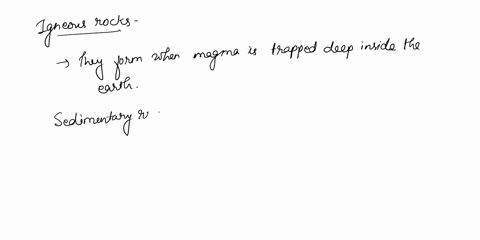 Igneous rocks -
→ They form when magma is trapped deep inside the
earth.
Sedimentary r